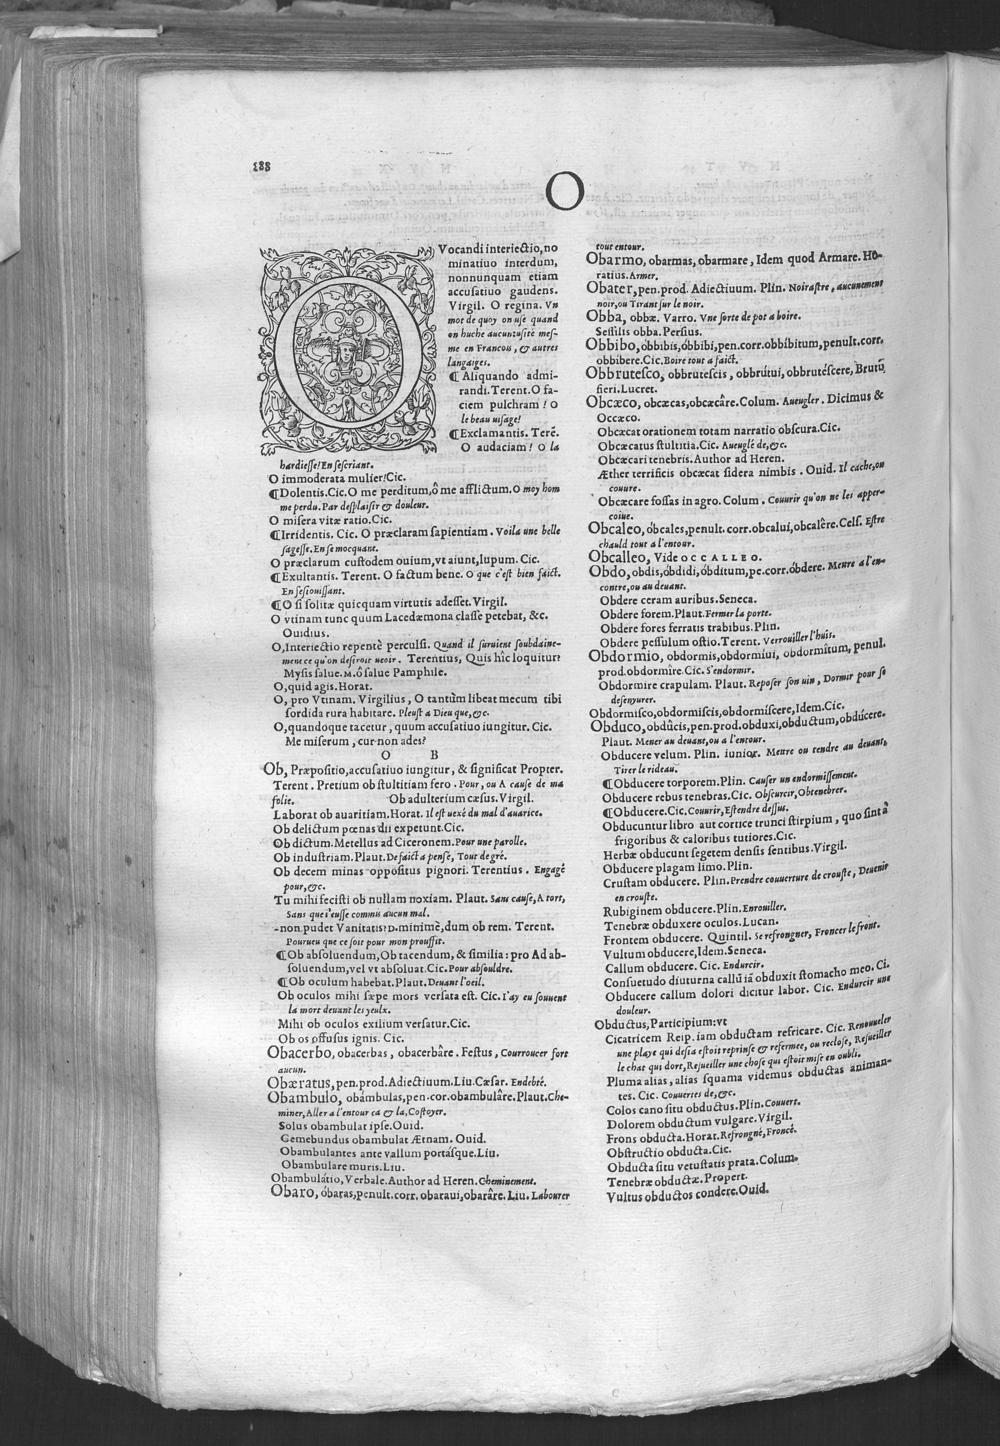 188
O
O Vocandi interiectio, no
minatiuo interdum,
nonnunquam etiam
accusatiuo gaudens.
Virgil. O regina. Vn
mot de quoy on use quand
on huche aucun, usité mes-
me en Francois, & autres
langaiges.
¶ Aliquando admi-
randi. Terent. O fa-
ciem pulchram! O
le beau uisage!
¶ Exclamantis. Terẽ.
O audaciam! O la
hardiesse! En sescriant.
O immoderata mulier! Cic.
¶ Dolentis. Cic. O me perditum, ô me afflictum. O moy hom
me perdu. Par desplaisir & douleur.
O misera vitæ ratio. Cic.
¶ Irridentis. Cic. O præclaram sapientiam. Voila une belle
sagesse. En se mocquant.
O præclarum custodem ouium, vt aiunt, lupum. Cic.
¶ Exultantis. Terent. O factum bene. O que c'est bien faict.
En sesiouissant.
¶ O si solitæ quicquam virtutis adesset. Virgil.
O vtinam tunc quum Lacedæmona classe petebat, &c.
Ouidius.
O, Interiectio repentè perculsi. Quand il suruient soubdaine-
ment ce qu'on desiroit ueoir. Terentius, Quis hîc loquitur?
Mysis salue. M. ô salue Pamphile.
O, quid agis. Horat.
O, pro Vtinam. Virgilius, O tantùm libeat mecum tibi
sordida rura habitare. Pleust a Dieu que, &c.
O, quandoque tacetur, quum accusatiuo iungitur. Cic.
Me miserum, cur non ades?
O B
Ob, Præpositio, accusatiuo iungitur, & significat Propter.
Terent. Pretium ob stultitiam fero. Pour, ou A cause de ma
folie. Ob adulterium cæsus. Virgil.
Laborat ob auaritiam. Horat. Il est uexé du mal d'auarice.
Ob delictum pœnas dii expetunt. Cic.
Ob dictum. Metellus ad Ciceronem. Pour une parolle.
Ob industriam. Plaut. De faict a pensé, Tout de gré.
Ob decem minas oppositus pignori. Terentius. Engagé
pour, &c.
Tu mihi fecisti ob nullam noxiam. Plaut. Sans cause, A tort,
Sans que i'eusse commis aucun mal.
-non pudet Vanitatis? D. minimè, dum ob rem. Terent.
Pourueu que ce soit pour mon prouffit.
¶ Ob absoluendum, Ob tacendum, & similia: pro Ad ab-
soluendum, vel vt absoluat. Cic. Pour absouldre.
¶ Ob oculum habebat. Plaut. Deuant l'oeil.
Ob oculos mihi sæpe mors versata est. Cic. I'ay eu souuent
la mort deuant les yeulx.
Mihi ob oculos exilium versatur. Cic.
Ob os offusus ignis. Cic.
Obacerbo, obacerbas, obacerbâre. Festus, Courroucer fort
aucun.
Obæratus, pen. prod. Adiectiuum. Liu. Cæsar. Endebté.
Obambulo, obámbulas, pen. cor. obambulâre. Plaut. Che-
miner, Aller a l'entour ca & la, Costoyer.
Solus obambulat ipse. Ouid.
Gemebundus obambulat Ætnam. Ouid.
Obambulantes ante vallum portásque. Liu.
Obambulare muris. Liu.
Obambulátio, Verbale. Author ad Heren. Cheminement.
Obaro, óbaras, penult. corr. obaraui, obarâre. Liu. Labourer
tout entour.
Obarmo, obarmas, obarmare, Idem quod Armare. Ho-
ratius. Armer.
Obater, pen. prod. Adiectiuum. Plin. Noirastre, aucunement
noir, ou Tirant sur le noir.
Obba, obbæ. Varro. Vne sorte de pot a boire.
Sessilis obba. Persius.
Obbibo, óbbibis, óbbibi, pen. corr. obbíbitum, penult. corr.
obbibere. Cic. Boire tout a faict.
Obbrutesco, obbrutescis, obbrútui, obbrutéscere, Brutũ
fieri. Lucret.
Obcæco, obcæcas, obcæcâre. Colum. Aueugler. Dicimus &
Occæco.
Obcæcat orationem totam narratio obscura. Cic.
Obcæcatus stultitia. Cic. Aueuglé de, &c.
Obcæcari tenebris. Author ad Heren.
Æther terrificis obcæcat sidera nimbis. Ouid. Il cache, ou
couure.
Obcæcare fossas in agro. Colum. Couurir qu'on ne les apper-
coiue.
Obcaleo, óbcales, penult. corr. obcalui, obcalêre. Cels. Estre
chauld tout a l'entour.
Obcalleo, Vide OCCALLEO.
Obdo, obdis, óbdidi, óbditum, pe. corr. óbdere. Mettre a l'en-
contre, ou au deuant.
Obdere ceram auribus. Seneca.
Obdere forem. Plaut. Fermer la porte.
Obdere fores ferratis trabibus. Plin.
Obdere pessulum ostio. Terent. Verrouiller l'huis.
Obdormio, obdormis, obdormiui, obdormitum, penul.
prod. obdormîre. Cic. S'endormir.
Obdormire crapulam. Plaut. Reposer son uin, Dormir pour se
desenyurer.
Obdormisco, obdormiscis, obdormíscere, Idem. Cic.
Obduco, obdûcis, pen. prod. obduxi, obductum, obdúcere.
Plaut. Mener au deuant, ou a l'entour.
Obducere velum. Plin. iunior. Mettre ou tendre au deuant,
Tirer le rideau.
¶ Obducere torporem. Plin. Causer un endormissement.
Obducere rebus tenebras. Cic. Obscurcir, Obtenebrer.
¶ Obducere. Cic. Couurir, Estendre dessus.
Obducuntur libro aut cortice trunci stirpium, quo sint à
frigoribus & caloribus tutiores. Cic.
Herbæ obducunt segetem densis sentibus. Virgil.
Obducere plagam limo. Plin.
Crustam obducere. Plin. Prendre couuerture de crouste, Deuenir
en crouste.
Rubiginem obducere. Plin. Enrouiller.
Tenebræ obduxere oculos. Lucan.
Frontem obducere. Quintil. Se refrongner, Froncer le front.
Vultum obducere, Idem. Seneca.
Callum obducere. Cic. Endurcir.
Consuetudo diuturna callũ iã obduxit stomacho meo. Ci.
Obducere callum dolori dicitur labor. Cic. Endurcir une
douleur.
Obductus, Participium: vt
Cicatricem Reip. iam obductam refricare. Cic. Renouueler
une playe qui desia estoit reprinse & refermee, ou reclose, Resueiller
le chat qui dort, Resueiller une chose qui estoit mise en oubli.
Pluma alias, alias squama videmus obductas animan-
tes. Cic. Couuertes de, &c.
Colos cano situ obductus. Plin. Couuert.
Dolorem obductum vulgare. Virgil.
Frons obducta. Horat. Refrongné, Froncé.
Obstructio obducta. Cic.
Obducta situ vetustatis prata. Colum.
Tenebræ obductæ. Propert.
Vultus obductos condere. Ouid.